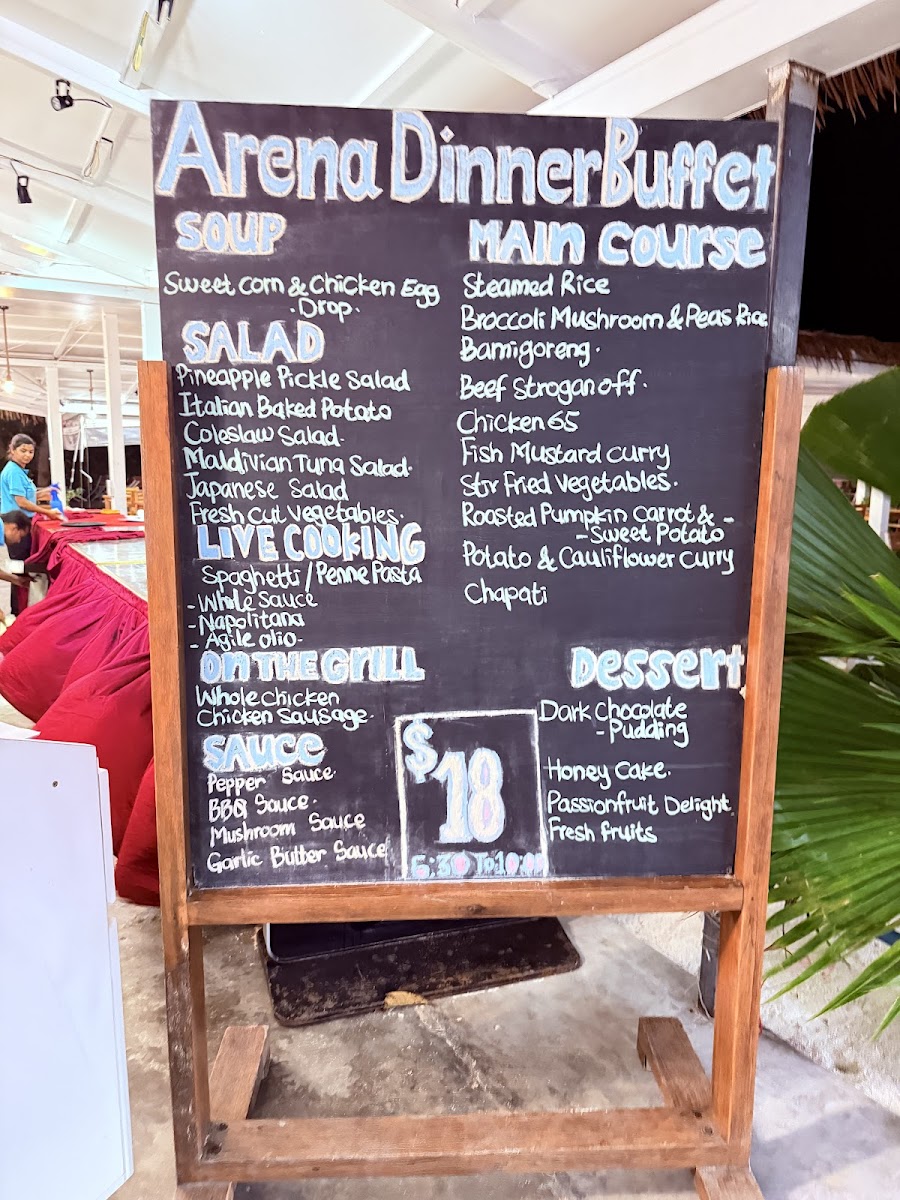 Arena Dinner Buffet
SOUP
Sweet corn & Chicken Egg
.Drop.
SALAD
Pineapple Pickle Salad
Italian Baked Potato
Coleslaw Salad.
Maldivian Tuna Salad.
Japanese Salad
Fresh Cut Vegetables.
LIVE COOKING
Spaghetti/Penne Pasta
- Whole Sauce
- Napolitana
- Agile olio.
ON THE GRILL
Whole chicken
Chicken Sausage.
SAUCE
Pepper Sauce.
BBQ Sauce.
Mushroom Sauce
Garlic Butter Sauce
MAIN COURSE
Steamed Rice
Broccoli Mushroom & Peas Rice
Bamigoreng.
Beef Stroganoff.
Chicken 65
Fish Mustard Curry
Stir Fried Vegetables.
Roasted Pumpkin Carrot & -
- Sweet Potato
Potato & Cauliflower Curry
Chapati
Dessert
Dark Chocolate
- Pudding
Honey Cake.
Passionfruit Delight
Fresh fruits
$18
6:30 To 10:00